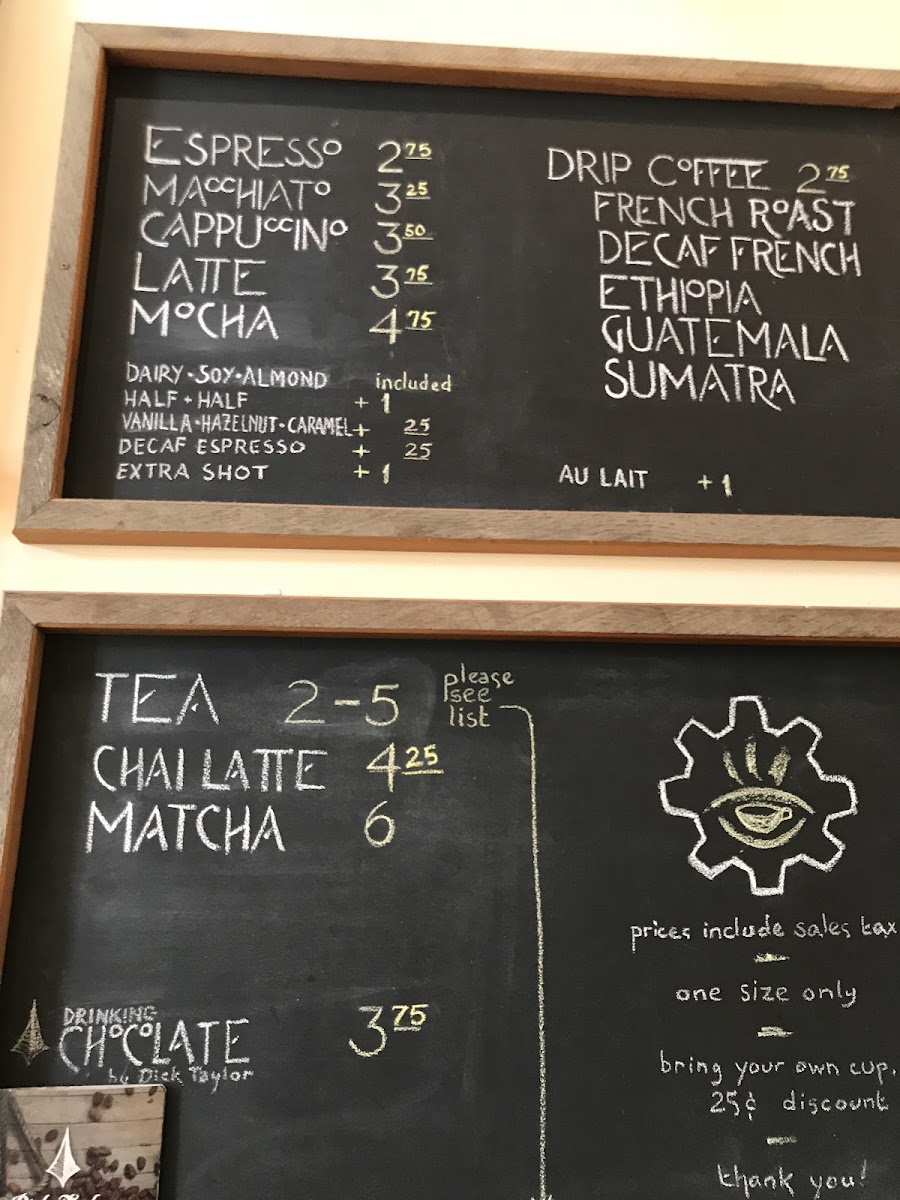 ESPRESSO 2 75
MACCHIATO 3 25
CAPPUCCINO 3 50
LATTE 3 75
MOCHA 4 75
DAIRY · SOY · ALMOND included
HALF + HALF + 1
VANILLA · HAZELNUT · CARAMEL + 25
DECAF ESPRESSO + 25
EXTRA SHOT + 1
DRIP COFFEE 2 75
FRENCH ROAST
DECAF FRENCH
ETHIOPIA
GUATEMALA
SUMATRA
AU LAIT +1
TEA 2-5
please
see
list
CHAI LATTE 4 25
MATCHA 6
DRINKING
CHOCOLATE 3 75
by Dick Taylor
prices include sales tax
one size only
bring your own cup,
25¢ discount
thank you!